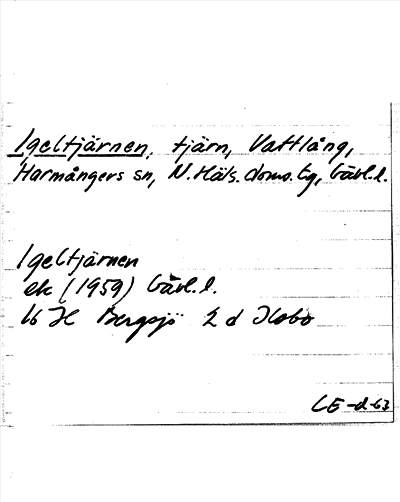 Igeltjärnen, tjärn, Vattlång,
Harmångers sn, N. Häls. doms. lg, Gävl. l.
Igeltjärnen
ek (1959) Gävl. l.
16 H Bergsjö 2 d
LE -d-63